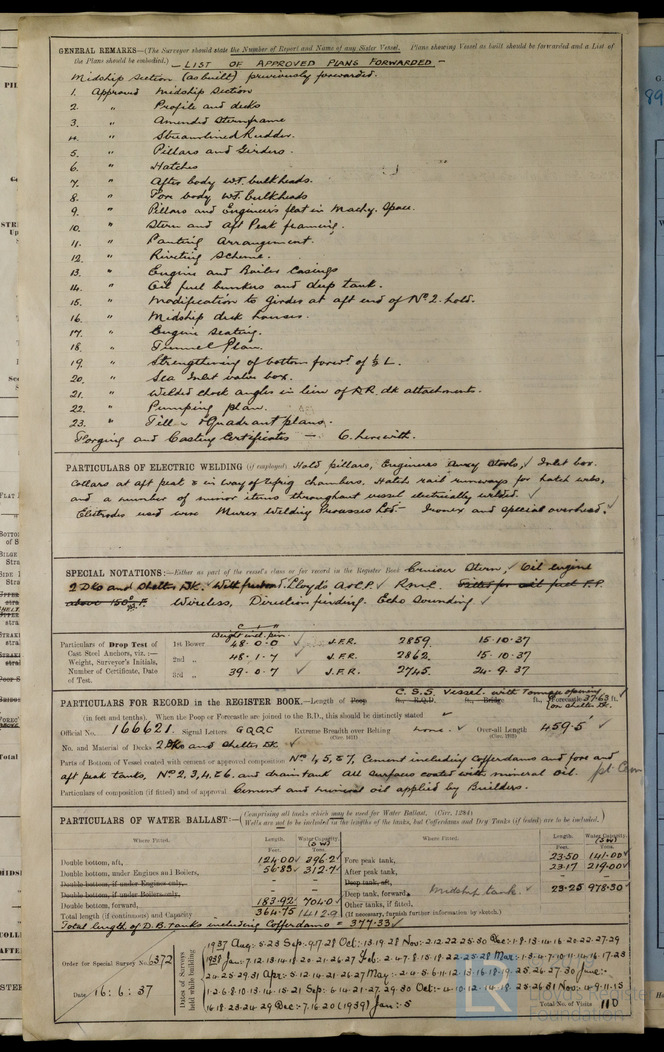 GENERAL REMARKS—(The Surveyor should state the Number of Report and Name of any Sister Vessel. Plans showing Vessel as built should be forwarded and a List of
the Plans should be embodied.) — LIST OF APPROVED PLANS FORWARDED —
Midship Section (as built) previously forwarded.
1. Approved Midship Section
2. " Profile and decks
3. " Amended Sternframe
4. " Streamlined Rudder.
5. " Pillars and Girders.
6. " Hatches
7. " After body W.T. bulkheads.
8. " Fore body W.T. bulkheads
9. " Pillars and Engineers flat in Machy. Space.
10. " Stern and Aft Peak framing.
11. " Panting Arrangement.
12. " Riveting Scheme.
13. " Engine and Boiler Casings
14. " Oil fuel bunkers and deep tank.
15. " Modification to Girder at aft end of No 2 hold.
16. " Midship deck houses.
17. " Engine Seating.
18. " Tunnel Plan.
19. " Strengthening of bottom forwd. of 1/5 L.
20. " Sea Inlet valve box.
21. " Welded chock angles in lieu of dk attachments.
22. " Pumping plan.
23. " Quadrant plans.
Forging and Casting Certificates — 6. herewith.
PARTICULARS OF ELECTRIC WELDING (if employed) Hold pillars, Engineers Stools, Inlet box.
Collars at aft peak & in way of refrig chambers. Hatch rail runways for hatch
and a number of minor items throughout vessel electrically welded.
Electrodes used were Murex Welding Processes Ltd — Ironex and special overhead.
SPECIAL NOTATIONS:—Either as part of the vessel's class or for record in the Register Book Cruiser Stern, Oil engine
2 Dks and Shelter Dk. With Lloyd's A & C.P. R.M.C. Fitted for oil fuel F.P.
above 150°F. Wireless, Direction finding. Echo Sounding
Weight incl. pin.
Particulars of Drop Test of 1st Bower 48.0.0 J.F.R. 2859 15.10.37
Cast Steel Anchors, viz.:—
Weight, Surveyor's Initials, 2nd " 48.1.7 J.F.R. 2862 15.10.37
Number of Certificate, Date 3rd " 39.0.7 J.F.R. 2745 24.9.37
of Test.
C.S.S. Vessel. with Tonnage opening
PARTICULARS FOR RECORD in the REGISTER BOOK.—Length of Poop ft., R.Q.D. ft., Bridge ft., Forecastle 37.63 ft.
on shelter Dk.
(in feet and tenths). When the Poop or Forecastle are joined to the B.D., this should be distinctly stated
Official No. 166621 Signal Letters GQQC Extreme Breadth over Belting none. Over-all Length 459.5'
No. and Material of Decks 2 Dks and Shelter Dk
Parts of Bottom of Vessel coated with cement or approved composition Nos 1, 4, 5, & 7, Cement including Cofferdams and fore and
aft peak tanks, Nos 2, 3, 4, & 6, and drain tank All Surfaces coated with mineral oil.
Particulars of composition (if fitted) and of approval Cement and mineral oil applied by Builders.
PARTICULARS OF WATER BALLAST:—(Comprising all tanks which may be used for Water Ballast, (Circ. 1284)
Wells are not to be included in the lengths of the tanks, but Cofferdams and Dry Tanks (if fitted) are to be included.)
Where Fitted. Length. Water Capacity. Where Fitted. Length. Water Capacity.
Feet. Tons. Feet. Tons.
Double bottom, aft, 124.00 396.2 Fore peak tank, 23.50 141.00
Double bottom, under Engines and Boilers, 56.83 312.7 After peak tank, 23.17 219.00
Double bottom, if under Engines only, — — Deep tank, aft, — —
Double bottom, if under Boilers only, — — Deep tank, forward, Midship tank. 23.25 978.30
Double bottom, forward, 183.92 704.0 Other tanks, if fitted,
Total length (if continuous) and Capacity 364.75 1412.9 (If necessary, furnish further information by sketch.)
Total length of D.B. tanks including Cofferdams = 377.33
Order for Special Survey No. 6372
Date 16.6.37
Dates of Surveys held while building
1937 Aug: 5.23 Sep: 9.17.28 Oct: 13.19.28 Nov: 2.12.22.25.30 Dec: 1.8.13.14.16.20.22.27.29
1938 Jan: 7.12.13.14.18.20.21.26.27 Feb: 2.4.7.8.15.18.22.25.28 Mar: 1.3.4.7.10.11.14.16.17.23
24.25.29.31 Apr: 5.12.14.21.26.27 May: 2.4.5.6.11.12.13.16.18.19.25.26.27.30 June:
1.2.6.8.10.13.14.15.21 Sep: 6.14.21.27.29.30 Oct: 4.10.12.14.18.25.26.31 Nov: 4.9.11.15
16.18.23.24.29 Dec: 7.16.20 (1939) Jan: 5
Total No. of Visits 110
Lloyd's Register
Foundation